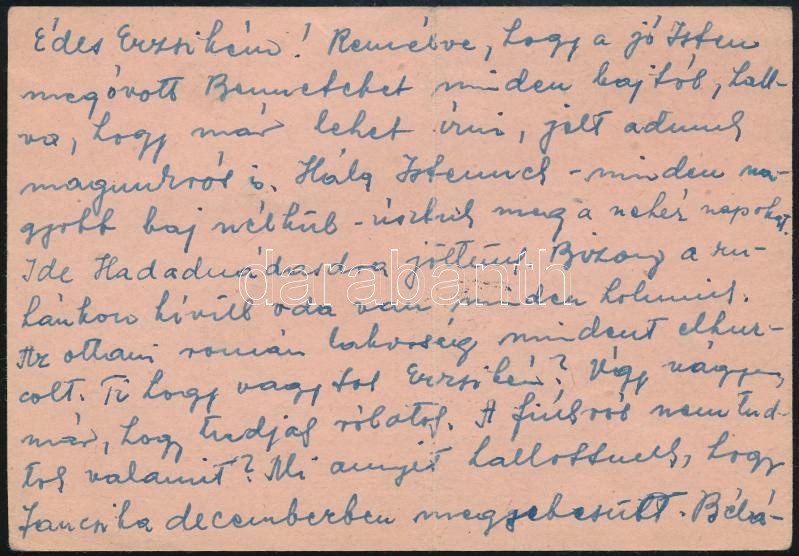 Édes Erzsikém! Remélve, hogy a jó Isten
megóvott Benneteket minden bajtól, hall-
va, hogy már lehet írni, jelt adunk
magunkról is. Hála Istennek - minden na-
gyobb baj nélkül - úsztuk meg a nehéz napokat.
Ide Hadadnádasdra jöttünk. Bizony a ru-
hánkon kívül oda van minden holmink.
Az ottani román lakosság mindent elhur-
colt. Ti hogy vagytok Erzsikém? Úgy vágyom
már, hogy tudjak rólatok. A fiúkról nem tud-
tok valamit? Mi annyit hallottunk, hogy
Jancsika decemberben megsebesült. Bélá-
darabanth